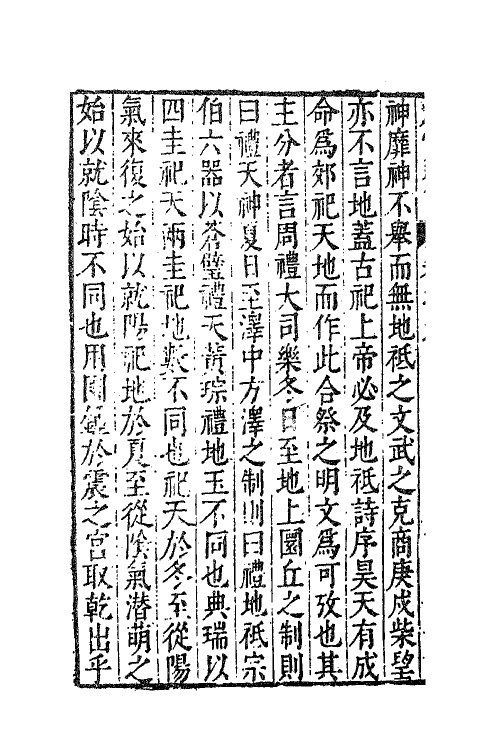 神靡神不舉而無地祗之文武之克商庚戍柴望
亦不言地蓋古祀上帝必及地祗詩序昊天有成
命爲郊祀天地而作此合祭之明文爲可攷也其
主分者言周禮大司樂冬日至地上圜丘之制則
曰禮天神夏日至澤中方澤之制則曰禮地祗宗
伯六器以蒼璧禮天黃琮禮地玉不同也典瑞以
四圭祀天兩圭祀地數不同也祀天於冬至從陽
氣來復之始以就陽祀地於夏至從陰氣潜萌之
始以就陰時不同也用圜鍾於震之宮取乾出乎